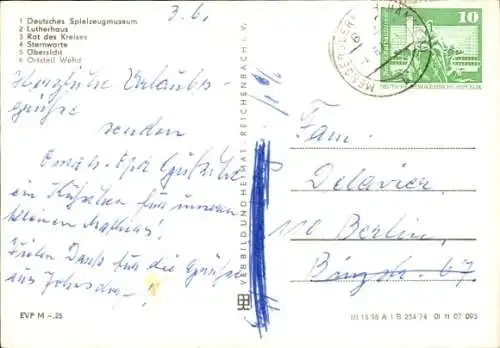 1 Deutsches Spielzeugmuseum
2 Lutherhaus
3 Rat des Kreises
4 Sternwarte
5 Übersicht
6 Ortsteil Wehd
3.6.
Herzliche Urlaubs-
grüße
senden
Oma u. Opa
ein Küßchen für unseren
kleinen
Vielen Dank für die Grüße
aus
EVP M –.25
VEB BILD UND HEIMAT REICHENBACH I. V.
10
DEUTSCHE DEMOKRATISCHE REPUBLIK
Fam.
Delavier
110 Berlin
Binzstr. 67
III 18 98 A 1 B 254 74 01 11 07 095